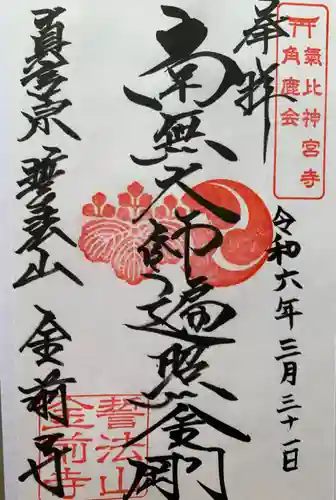 奉拝
氣比神宮寺
角鹿会
令和六年三月三十一日
南無大師遍照金剛
真言宗 誓法山 金前寺
誓法山
金前寺